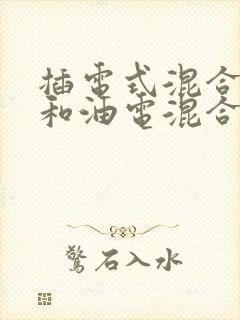 插電式混合
和油電混合
驚石入水